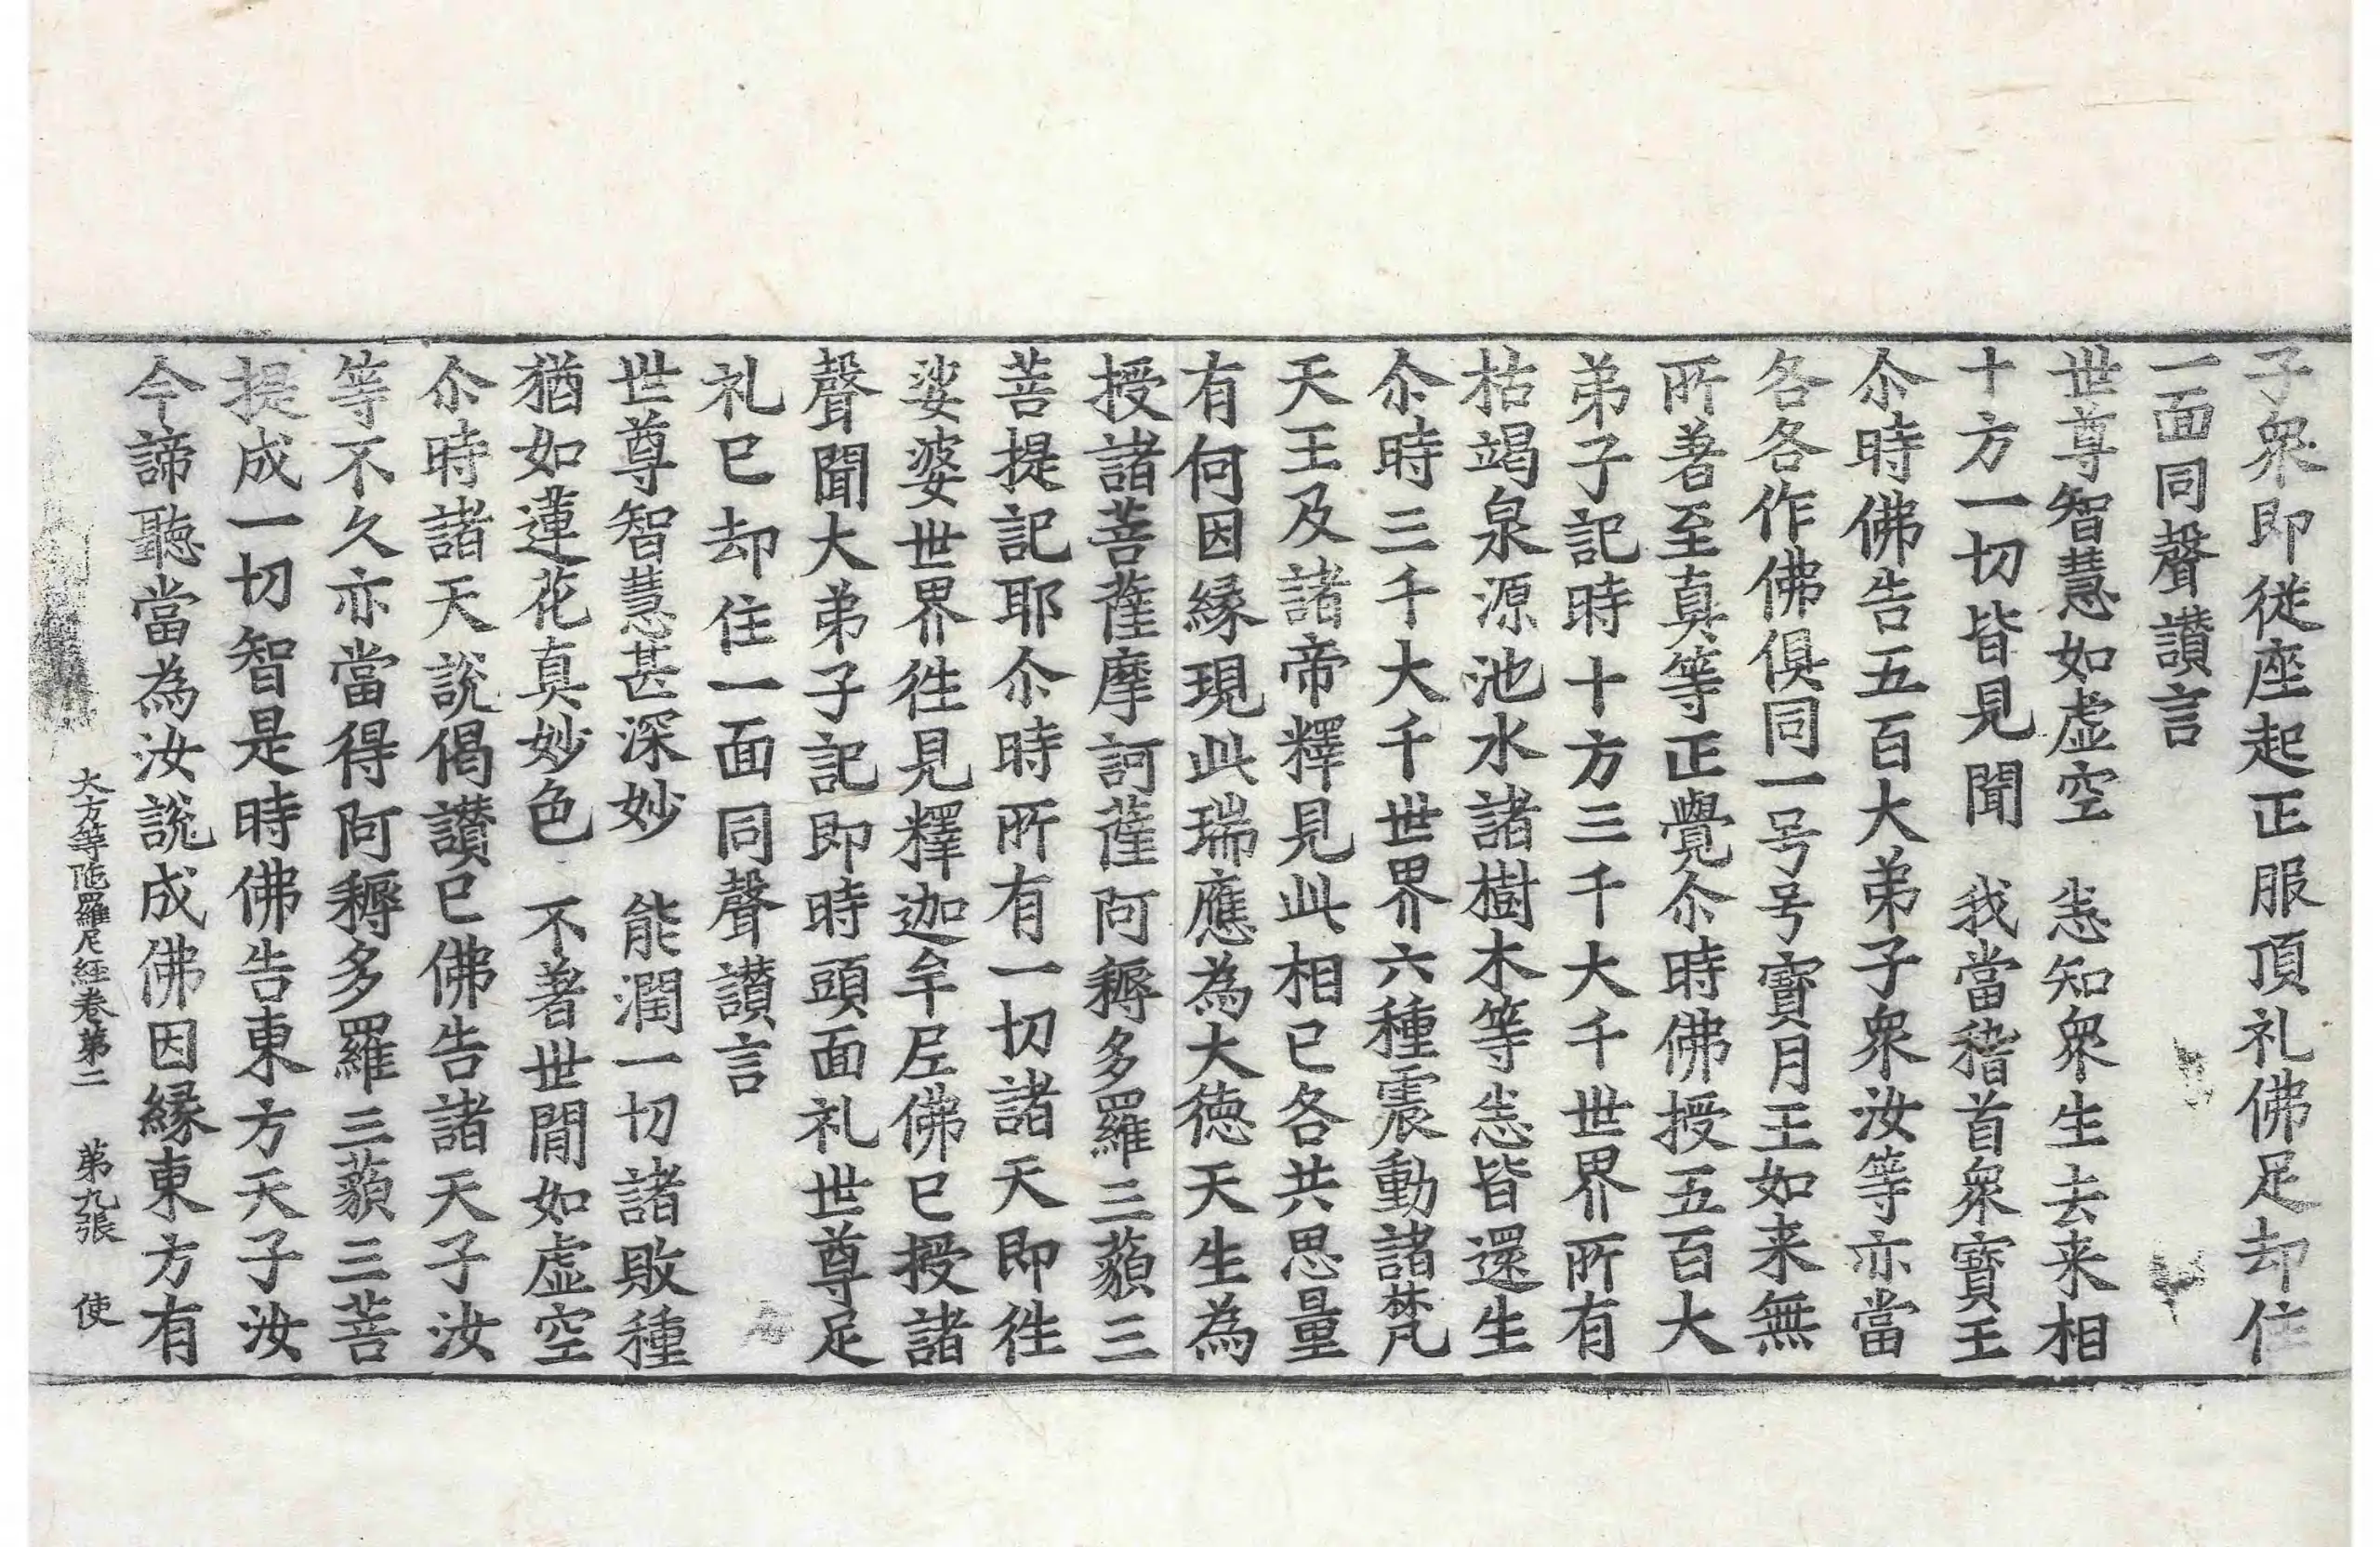 子衆即從座起正服頂礼佛足却住
一面同聲讃言
世尊智慧如虚空　悉知衆生去来相
十方一切皆見聞　我當稽首衆寳王
尒時佛告五百大弟子衆汝等亦當
各各作佛俱同一号号寳月王如来無
所著至真等正覺尒時佛授五百大
弟子記時十方三千大千世界所有
枯竭泉源池水諸樹木等悉皆還生
尒時三千大千世界六種震動諸梵
天王及諸帝釋見此相已各共思量
有何因緣現此瑞應為大徳天生為
授諸菩薩摩訶薩阿耨多羅三藐三
菩提記耶尒時所有一切諸天即徃
娑婆世界徃見釋迦牟尼佛已授諸
聲聞大弟子記即時頭面礼世尊足
礼已却住一面同聲讃言
世尊智慧甚深妙　能潤一切諸敗種
猶如蓮花真妙色　不著世間如虚空
尒時諸天說偈讃已佛告諸天子汝
等不久亦當得阿耨多羅三藐三菩
提成一切智是時佛告東方天子汝
今諦聽當為汝說成佛因緣東方有
大方等陁羅尼経卷第二　第九張　使